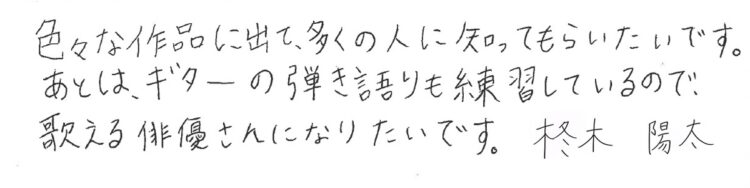 色々な作品に出て、多くの人に知ってもらいたいです。
あとは、ギターの弾き語りも練習しているので、
歌える俳優さんになりたいです。 柊木 陽太